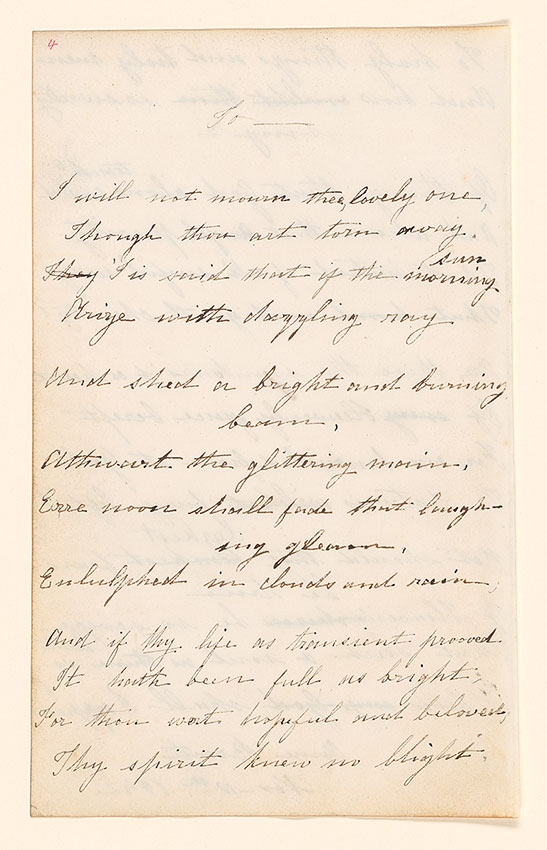 4
To ———
I will not mourn thee, lovely one,
Though thou art torn away.
They 'Tis said that if the morning sun
Arize with dazzling ray
And shed a bright and burning
beam,
Athwart the glittering main,
Ere noon shall fade that laugh-
ing gleam,
Enlulphed in clouds and rain,
And if thy life as transient prooved
It hath been full as bright
For thou wert hopeful and beloved,
Thy spirit knew no blight.